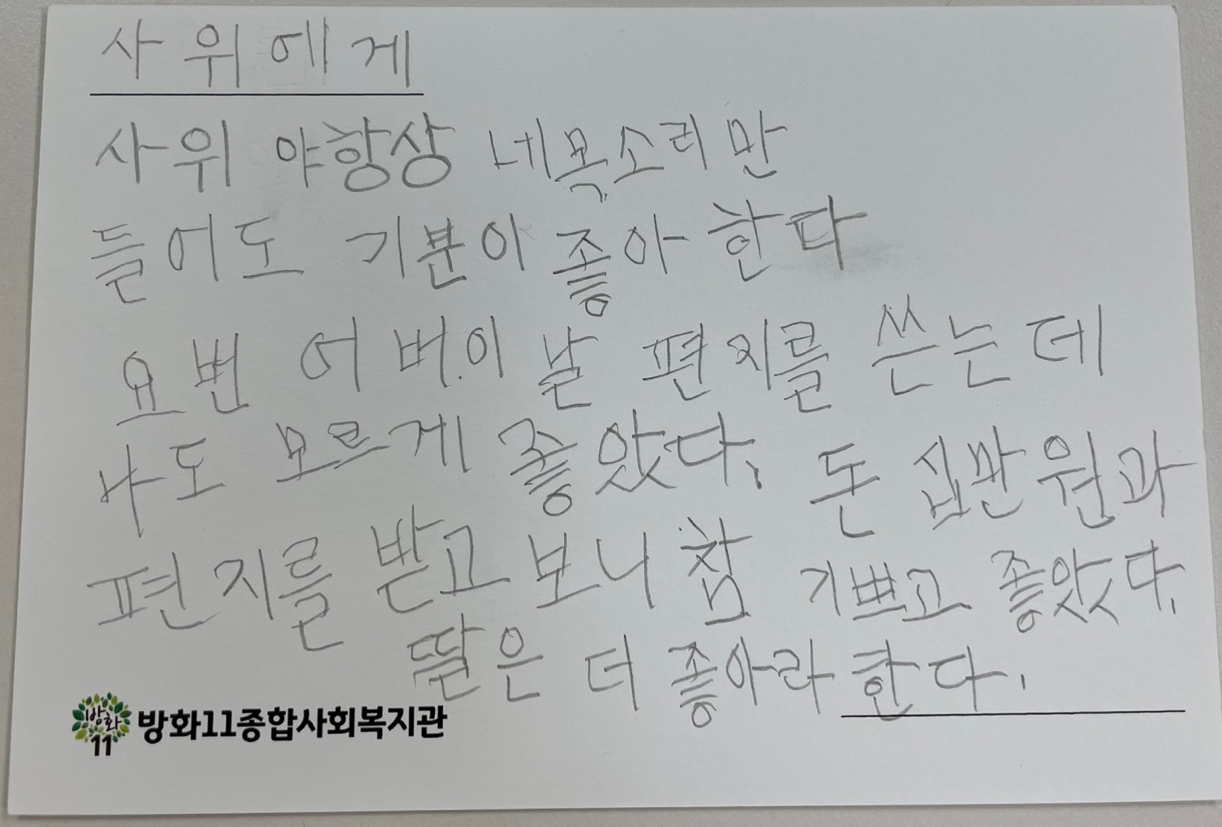 사위에게
사위 야항상 네목소리만
들어도 기분이 좋아 한다
요번 어버이 날 편지를 쓴는데
나도 모르게 좋았다. 돈 십만원과
편지를 받고 보니 참 기쁘고 좋았다.
딸은 더 좋아라 한다.
방화
11
방화11종합사회복지관